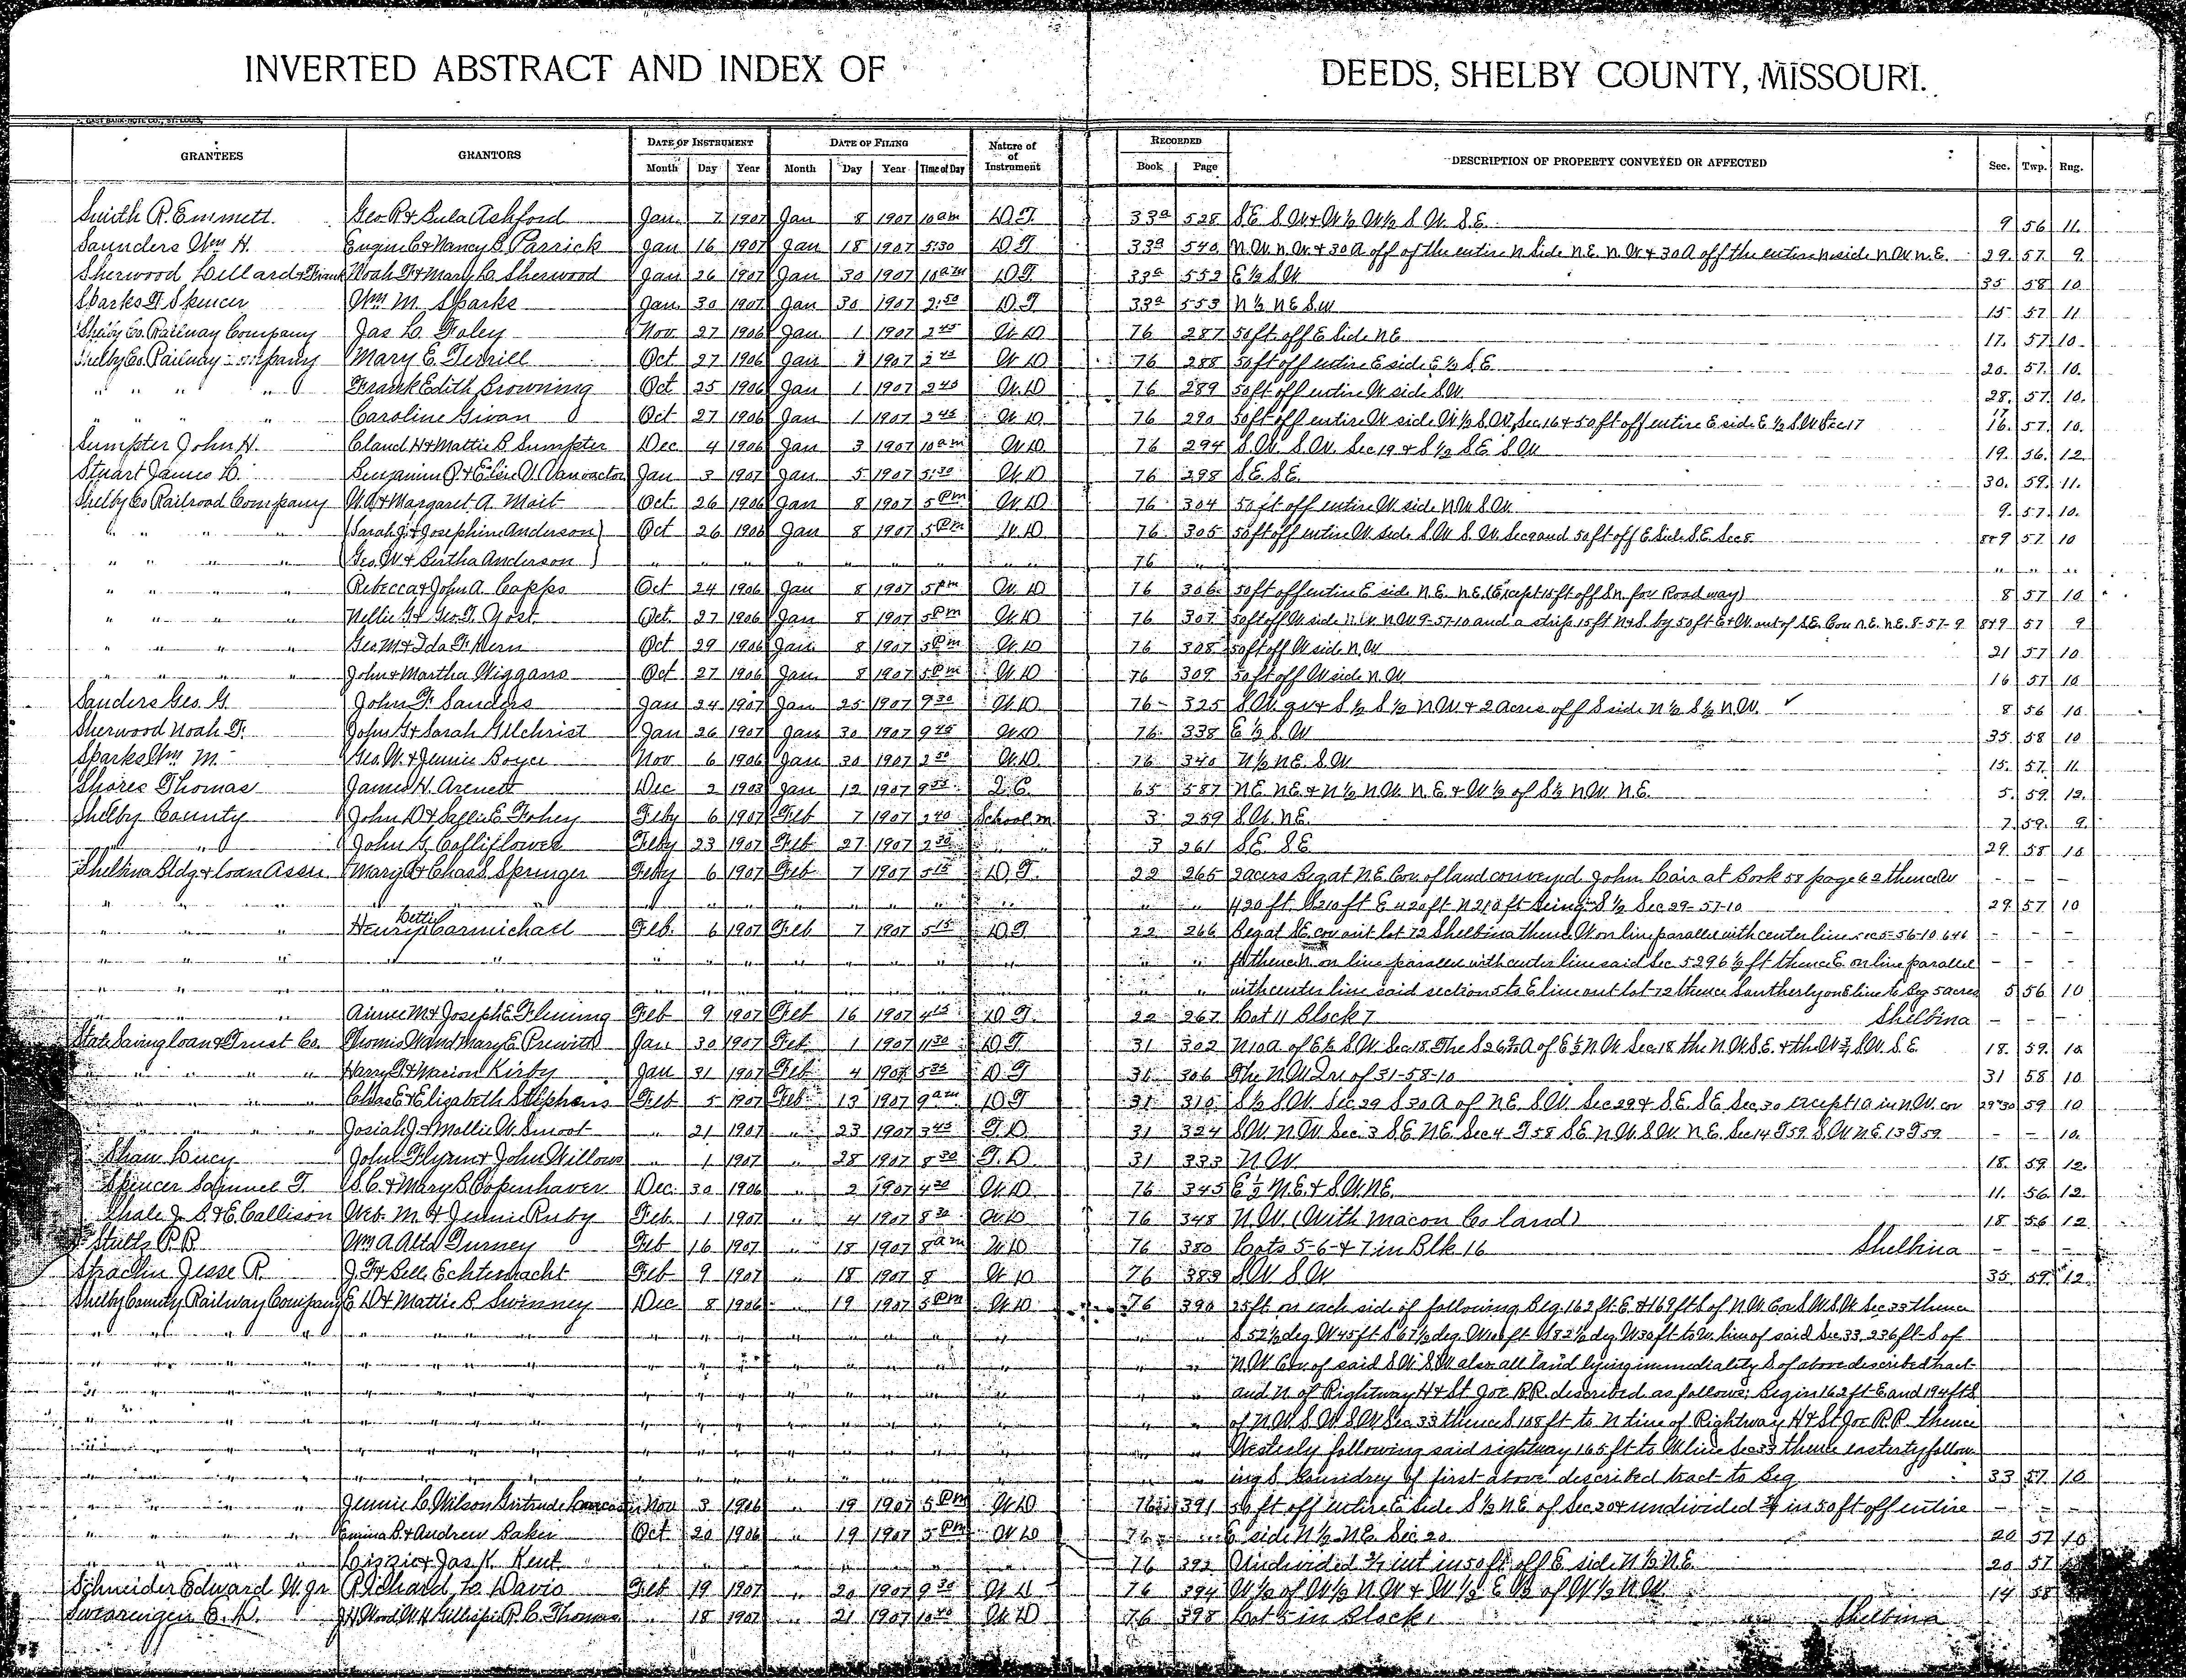 INVERTED ABSTRACT AND INDEX OF DEEDS, SHELBY COUNTY, MISSOURI.
GRANTEES GRANTORS DATE OF INSTRUMENT DATE OF FILING Nature of Instrument RECORDED DESCRIPTION OF PROPERTY CONVEYED OR AFFECTED Sec. Twp. Rng.
Month Day Year Month Day Year Time of Day Book Page
Smith R. Emmett. Geo R & Eula Ashford Jan. 7 1907 Jan 8 1907 10 am D.T. 33a 528 S.E. S.W & W½ W½ S.W. S.E. 9 56 11
Saunders Wm H. Eugene C & Nancy B. Parrick Jan 16 1907 Jan 18 1907 5:30 D.T. 33a 540 N.W. N.W. & 30 A off of the entire N side N.E. N.W & 30 A off the entire N side N.W N.E. 29. 57. 9.
Sherwood Lillard & Frank Noah F & Mary C. Sherwood Jan 26 1907 Jan 30 1907 10 am D.T. 33a 552 E½ S.W 35 58 10
Sparks F. Spencer Wm M. Sparks Jan. 30 1907 Jan 30 1907 2:50 D.T 33a 553 N½ N.E S.W 15 57 11
Shelby Co. Railway Company Jas C. Foley Nov 27 1906 Jan 1 1907 2 45 W.D 76 287 50 ft. off E Side N.E 17. 57 10
Shelby Co. Railway Company Mary E. Terrill Oct 27 1906 Jan 1 1907 2 45 W D 76 288 50 ft off entire E side E½ S.E. 20. 57. 10.
" " " " Frank Edith Browning Oct 25 1906 Jan 1 1907 2 45 W.D 76 289 50 ft off entire W side S.W 28. 57. 10.
" " " " Caroline Givan Oct 27 1906 Jan 1 1907 2 45 W D 76 290 50 ft off entire W side W½ S.W, Sec 16 & 50 ft off entire E side E½ S.W Sec 17 17 16. 57. 10.
Sumpter John H. Claud H & Mattie B Sumpter Dec 4 1906 Jan 3 1907 10 am W.D. 76 294 S.W. S.W. Sec 19 & S½ S.E S.W 19. 56. 12.
Stuart James D. Jan 3 1907 Jan 5 1907 5:30 W.D 76 298 S.E. S.E. 30. 59. 11.
Shelby Co Railroad Company W.A & Margaret A. Oct. 26 1906 Jan 8 1907 5 Pm W.D 76 304 50 ft off entire W side N.W S.W. 9. 57. 10.
" " " " Sarah J. & Josephine Anderson Oct 26 1906 Jan 8 1907 5 Pm W D 76 305 50 ft off entire W side S.W S.W. Sec 9 and 50 ft off E side S.E. Sec 8. 8&9 57 10
" " " " Geo. W & Bertha Anderson " " " " " " " " 76 " " " "
" " " " Rebecca & John A. Capps Oct 24 1906 Jan 8 1907 5 Pm W. D 76 306 50 ft off entire E side N.E. N.E. (Except 15 ft off S.n. for Road way) 8 57 10
" " " " Nellie F & Geo. T. Yost. Oct. 27 1906 Jan 8 1907 5 Pm W.D 76 307 50 ft off W side N.W. N.W 9-57-10 and a strip 15 ft N & S. by 50 ft E & W. out of S.E. Cor N.E. N.E. 8-57-9 8&9 57 9
" " " " Geo. M & Ida F. Kern Oct 29 1906 Jan 8 1907 5 Pm W.D 76 308 50 ft off W side N.W 21 57 10
" " " " John & Martha Wiggans Oct 27 1906 Jan 8 1907 5 Pm W.D 76 309 50 ft off W side N.W 16 57 10
Sanders Geo. G. John F. Sanders Jan 24 1907 Jan 25 1907 9 30 W.D. 76 325 S.W. qr & S½ S½ N.W. & 2 acres off S side N½ S½ N.W. ✓ 8 56 10
Sherwood Noah F. John G & Sarah Gilchrist Jan 26 1907 Jan 30 1907 9 45 W.D 76 338 E½ S.W 35 58 10
Sparks Wm M. Geo. W. & Jennie Boyer Nov 6 1906 Jan 30 1907 2 50 W.D. 76 340 N½ N.E. S.W 15. 57. 11.
Shores Thomas James H. Dec 2 1903 Jan 12 1907 Q.C. 65 587 N.E N.E & N½ N.W. N.E. & W½ of S½ N.W. N.E. 5. 59. 12.
Shelby County John D & Sallie E. Feby 6 1907 Feb 7 1907 2 40 School M 3 259 S.W. N.E. 7. 59. 9.
" " John G. Colliflower Feby 23 1907 Feb 27 1907 2 30 " " 3 261 S.E. S.E 29 58 10
Shelbina Bldg & Loan Assn Mary A & Chas S. Springer Feby 6 1907 Feb 7 1907 5 15 D.T. 22 265 2 acres Beg at N.E. Cor. of land conveyed John Cain at Book 58 page 62 thence W - - -
" " " " " " " " " " 420 ft. S 210 ft E 420 ft N 210 ft being S½ Sec 29-57-10 29 57 10
" " " Henry & Bettie Carmichael Feb. 6 1907 Feb 7 1907 5 15 D.T 22 266 Beg at S.E. cor out lot 72 Shelbina thence W on line parallel with center line sec 5-56-10 646 - - -
" " " " " " " " " " ft thence N. on line parallel with center line said Sec 5 296½ ft thence E on line parallel - - -
" " " " " " " " " " with center line said section 5 to E line out lot 72 thence Southerly on E line to Beg 5 acres 5 56 10
" " " Aimee M & Joseph E. Fleming Feb 9 1907 Feb 16 1907 4 15 D T. 22 267 Lot 11 Block 7 Shelbina - - -
State Saving Loan & Trust Co. Thomis W and Mary E. Prewitt Jan. 30 1907 Feb 1 1907 11 30 D T 31 302 N 10 A of E½ S.W Sec. 18. The S 26 A of E½ N.W Sec. 18 the N.W S.E. & the W¾ S.W. S.E 18. 59. 10
" " " " Harry F & Marion Kirby Jan 31 1907 Feb 4 1907 D. T 31 306 The N.W Qr. of 31-58-10 31 58 10
" " " " Chas E & Elizabeth Stephens Feb 5 1907 Feb 13 1907 9 am D T 31 310 S½ S.W. Sec. 29 S 30 A of N.E. S.W. Sec 29 & S.E. S.E Sec. 30 except 1 a in N.W. cor 29&30 59 10
" " " " Josiah J & Mollie W. Smoot " 21 1907 " 23 1907 3 45 T.D 31 324 S.W. N.W Sec. 3 S.E N.E Sec 4 T 58 S.E N.W. S.W. N.E. Sec 14 T 59 S.W N.E 13 T 59 - - 10.
Shaw Lucy John Flynn & John Willows " 1 1907 " 28 1907 8 30 T.D. 31 333 N.W. 18. 59. 12.
Spencer Samuel T. S.C. & Mary B. Copenhaver Dec. 30 1906 " 2 1907 4 30 W.D 76 345 E½ N.E. & S.W. N.E. 11. 56. 12.
Thale J. S. & E. Callison Web. M. & Jennie Ruby Feb. 1 1907 " 4 1907 8 30 W.D 76 348 N.W. (With Macon Co land) 18 56 12
Stults P.B. Wm A Alta Turney Feb 16 1907 " 18 1907 8 am W.D 76 380 Lots 5-6-& 7 in Blk 16 Shelbina - - -
Strachn Jesse R. J.F & Bell Echternacht Feb 9 1907 " 18 1907 8 W D 76 383 S.W S.W 35. 59 12
Shelby County Railway Company E. D & Mattie B Swinney Dec 8 1906 " 19 1907 5 Pm W.D 76 390 25 ft on each side of following Beg. 162 ft. E. & 169 ft S of N.W Cor S.W. S.W Sec 33 thence
" " " " " " " " " S 52½ deg W 45 ft S 67½ deg W 100 ft S 82½ deg W 30 ft to W. line of said Sec. 33, 236 ft S. of
" " " " " " " " " N.W Cor. of said S.W. S.W also all land lying immediality S of above described tract
" " " " " " " " " and N. of Rightway H & St Joe R.R. described as follows: Begin 162 ft E and 194 ft S
" " " " " " " " " of N.W S.W S.W Sec 33 thence S 108 ft to N line of Rightway H & St Joe R.R. thence
" " " " " " " " " Westerly following said rightway 165 ft to W line Sec 33 thence easterty follow
" " " " " " " " " ing S. Boundrey of first above described tract to Beg 33 57. 10
" " " " Jennie C. Wilson Gertrude Lancaster Nov 3 1906 " 19 1907 5 Pm W.D 76 391 50 ft off entire E side S½ N.E of Sec. 20 & undivided in 50 ft off entire - - -
" " " " Emma B. & Andrew Baker Oct 20 1906 " 19 1907 5 Pm W.D 76 E side N½ N.E. Sec 20 20 57 10
" " " " Lizzie & Jas. K. Kent " " " " " " " " 76 392 Undivided int in 50 ft off E side N½ N.E 20 57
Schneider Edward W. Jr Richard L. Davis Feb 19 1907 " 20 1907 9 30 W D 76 394 W½ of W½ N.W & W½ E½ of W½ N.W 14 58
Swearengen E. D. J H Wood W.H. Gillispie R. C. Thomas " 18 1907 " 21 1907 10 40 W.D 76 398 Lot 5 in Block 1 Shelbina